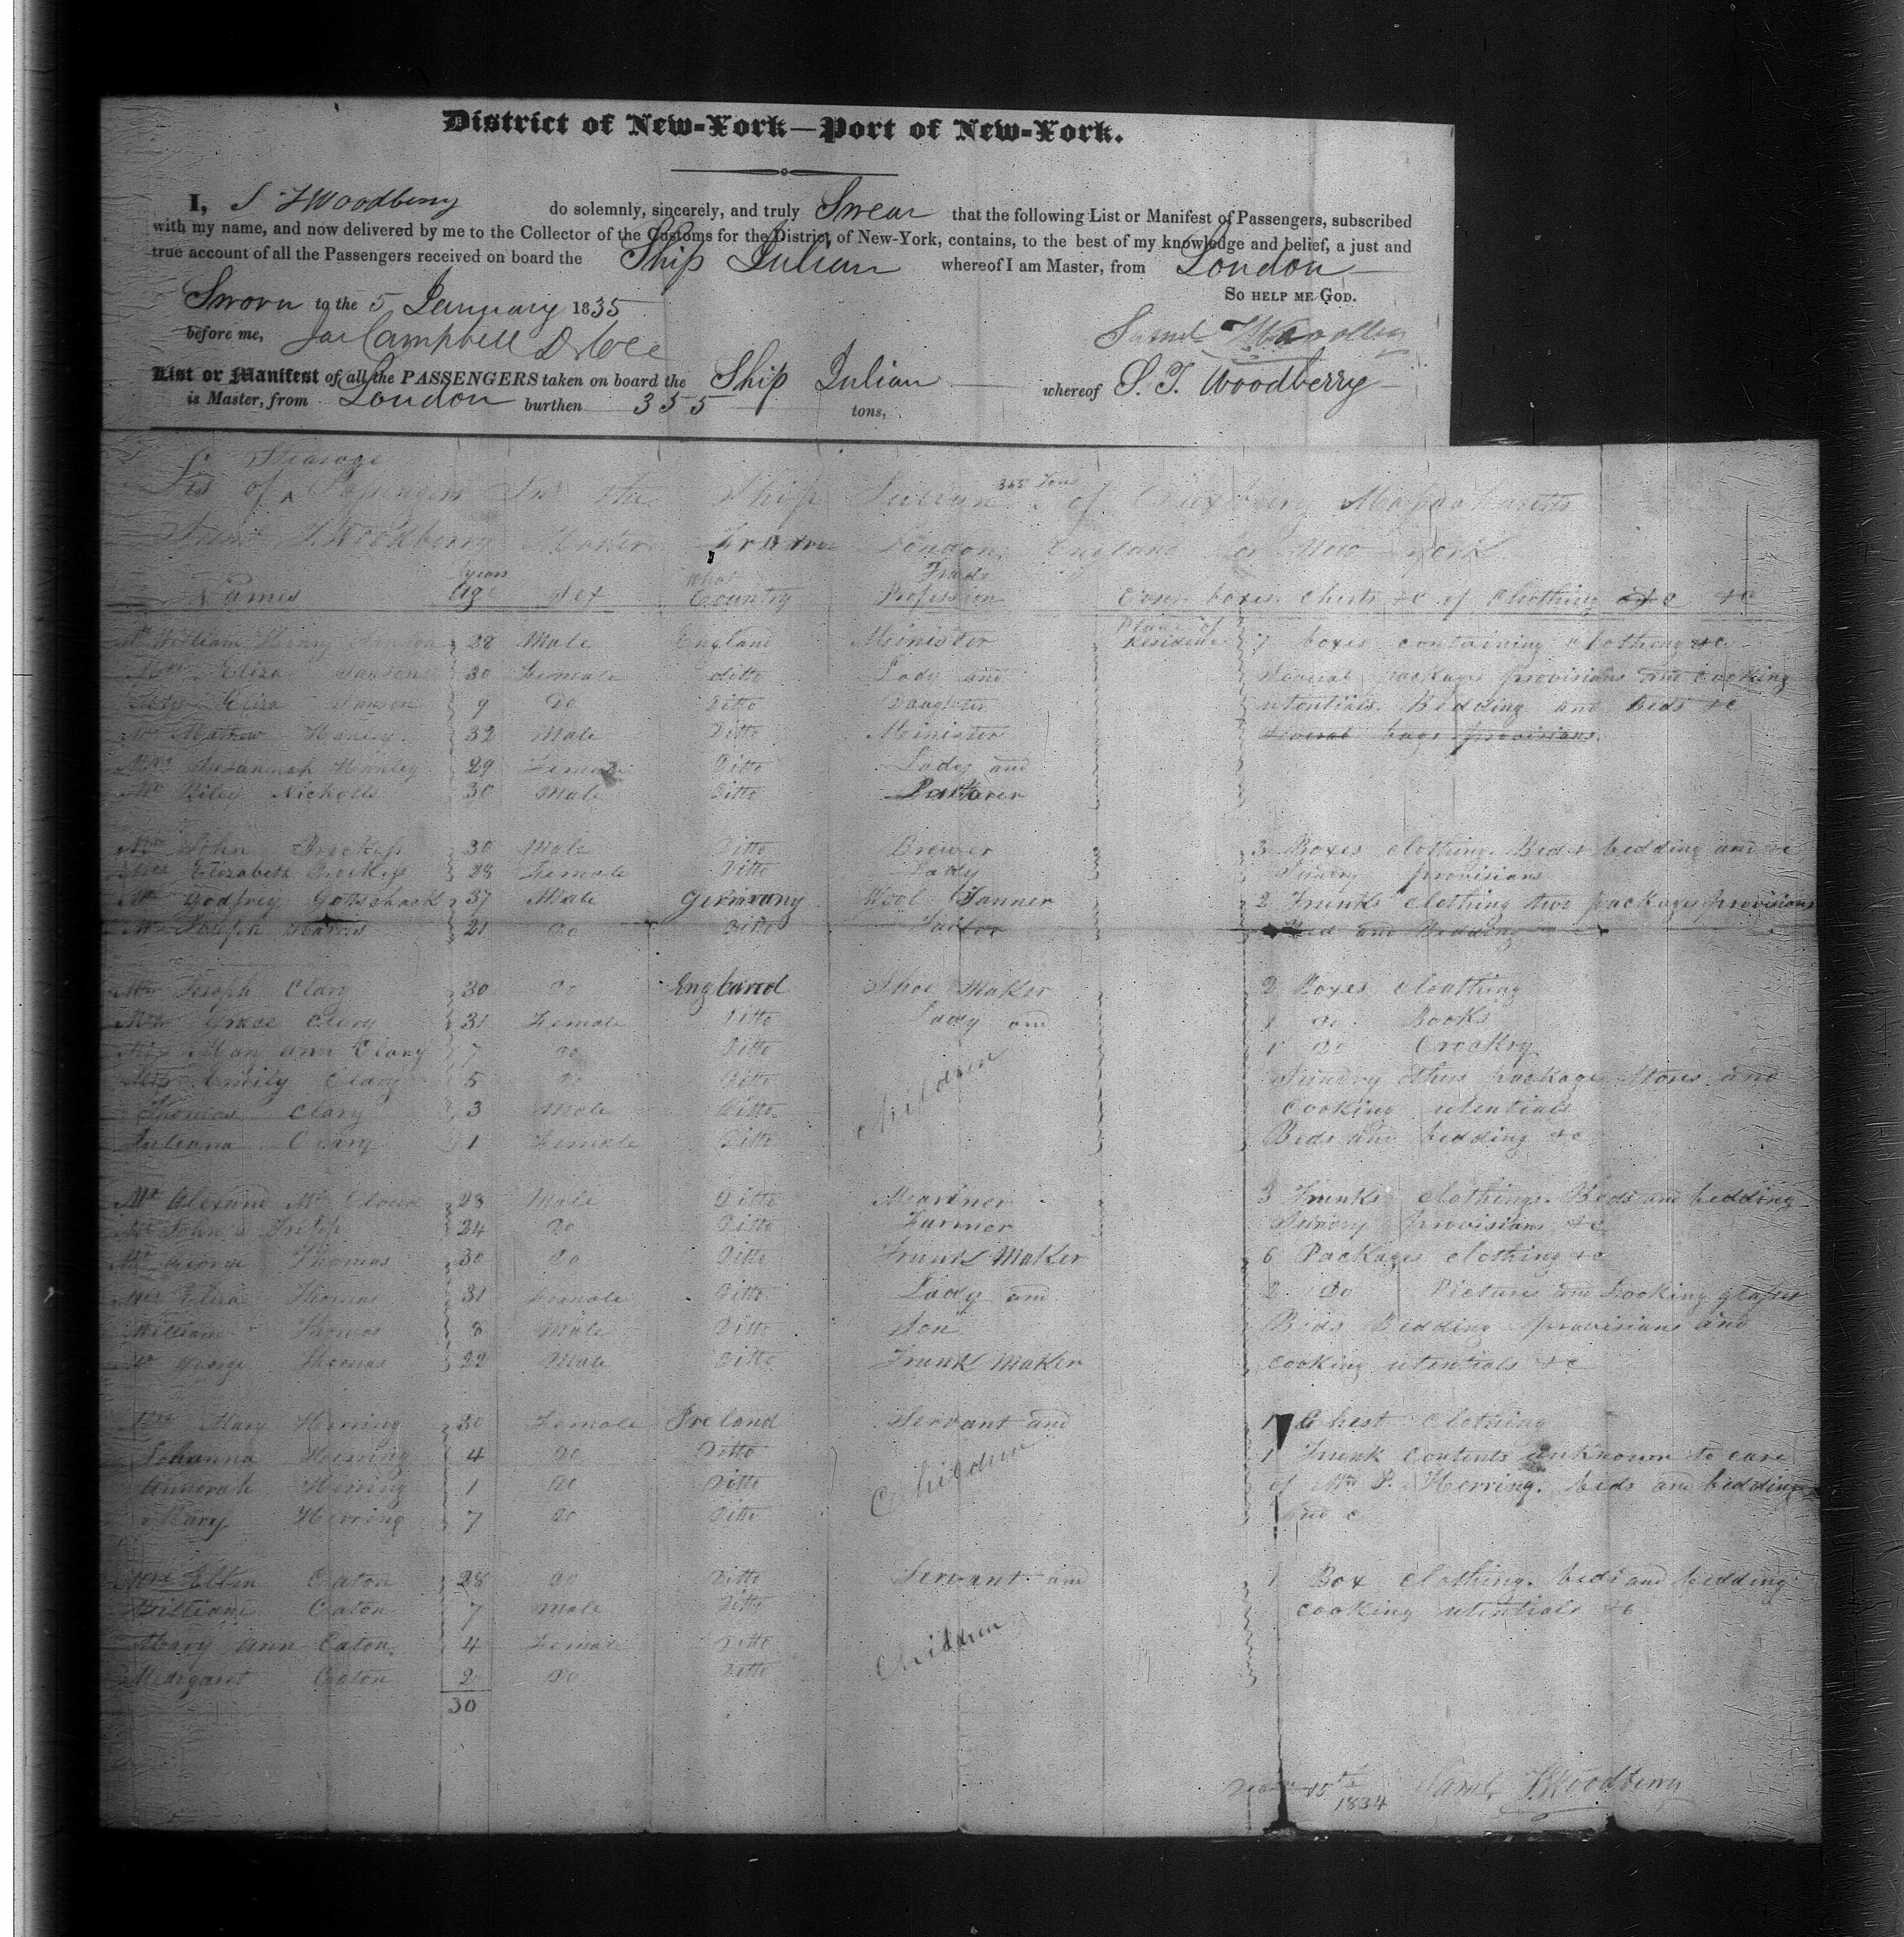 District of New-York—Port of New-York.
I, S T Woodberry do solemnly, sincerely, and truly Swear that the following List or Manifest of Passengers, subscribed
with my name, and now delivered by me to the Collector of the Customs for the District of New-York, contains, to the best of my knowledge and belief, a just and
true account of all the Passengers received on board the Ship Julian whereof I am Master, from London
So help me God.
Sworn to the 5 January 1835
before me, Campbell
Saml T Woodberry
List or Manifest of all the PASSENGERS taken on board the Ship Julian whereof S. T. Woodberry
is Master, from London burthen 355 tons,
Stearage
of Passengers In the Ship Julian 355 Tons of Duxbury Massachusetts
Saml T. Woodberry Master London England New York
Names years Age Sex What Country Trade Profession boxes chests &c of Clothing &c
Place of Residence
Mr William Henry 28 Male England Minister 7 boxes containing clothing &c
Mrs Eliza 30 Female ditto Lady and Several packages provisions and cooking
Eliza 9 Do Ditto Daughter utentials. Bedding and Beds &c
Mr Mathew Hanley 32 Male Ditto Minister Several bags provisions.
Mrs Susannah Hanley 29 Female Ditto Lady and
Mr Riley Nicholls 30 Male Ditto
Mr John 30 Male Ditto Brewer 3 Boxes clothing. Beds bedding and &c
Mrs Elizabeth 28 Female Ditto Lady Sundry provisions
Mr Godfrey Gottschack 37 Male Germany Wool Tanner 2 Trunks clothing two packages provisions
Mr Joseph Harris 21 Do Ditto Tailor Bed and Bedding
Mr Joseph Clary 30 Do England Shoe Maker 2 Boxes cloathing
Mrs Grace Clary 31 Female Ditto Lady and 1 do Books
Miss Mary ann Clary 7 Do Ditto 1 Do Crockry
Miss Emily Clary 5 Do Ditto Children Sundry other packages Stores and
Thomas Clary 3 Male Ditto Cooking utentials
Juliana Clary 1 Female Ditto Beds and bedding &c
Mr Mc Cloud 28 Male Ditto Mariner 3 Trunks clothings. Beds and bedding
Mr John 24 Do Ditto Farmer Sundry provisions &c
Mr George Thomas 30 Do Ditto Trunk Maker 6 Packages clothing &c
Mrs Eliza Thomas 31 Female Ditto Lady and 2 Do Pictures and Looking glasses
William Thomas 8 Male Ditto Son Beds Bedding provisions and
Mr George Thomas 22 Male Ditto Trunk Maker cooking utentials &c
Mrs Mary Herring 30 Female Ireland Servant and 1 Chest Clothing
Johanna Herring 4 Do Ditto 1 Trunk Contents unknown to care
Herring 1 Do Ditto Children of Mr P. Herring. beds and bedding
Mary Herring 7 Do Ditto and c
Mrs Ellen Eaton 28 Do Ditto Servant and 1 Box clothing. beds and bedding
William Eaton 7 Male Ditto cooking utentials &c
Mary ann Eaton 4 Female Ditto Children
Margaret Eaton 2 Do Ditto
30
15th 1834 Saml T. Woodberry